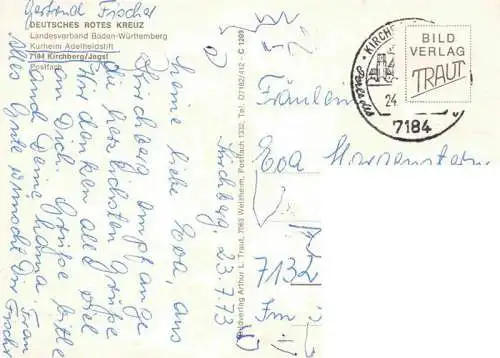 Gertrud Fischer
DEUTSCHES ROTES KREUZ
Landesverband Baden-Württemberg
Kurheim Adelheidstift
7184 Kirchberg/Jagst
Postfach
Kirchberg, 23.7.73
Meine liebe Eva, aus
Kirchberg empfange
die herzlichsten Grüße
Wir denken oft viel
an Dich. Grüße bitte
auch Deine Mama.
Alles Gute wünscht Dir Frau
Fischer
Bildverlag Arthur L. Traut, 7063 Welzheim, Postfach 1332, Tel. 07182/412 - C 1269
BILD
VERLAG
TRAUT
KIRCHBE
24.
7184
Fräulein
Eva Morgenstern
7132
Im